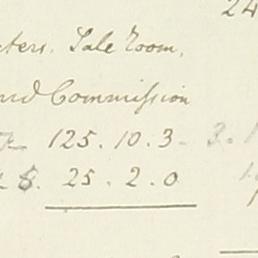 24
Sale Room,
and Commission
125. 10. 3 - 3.
25. 2. 0